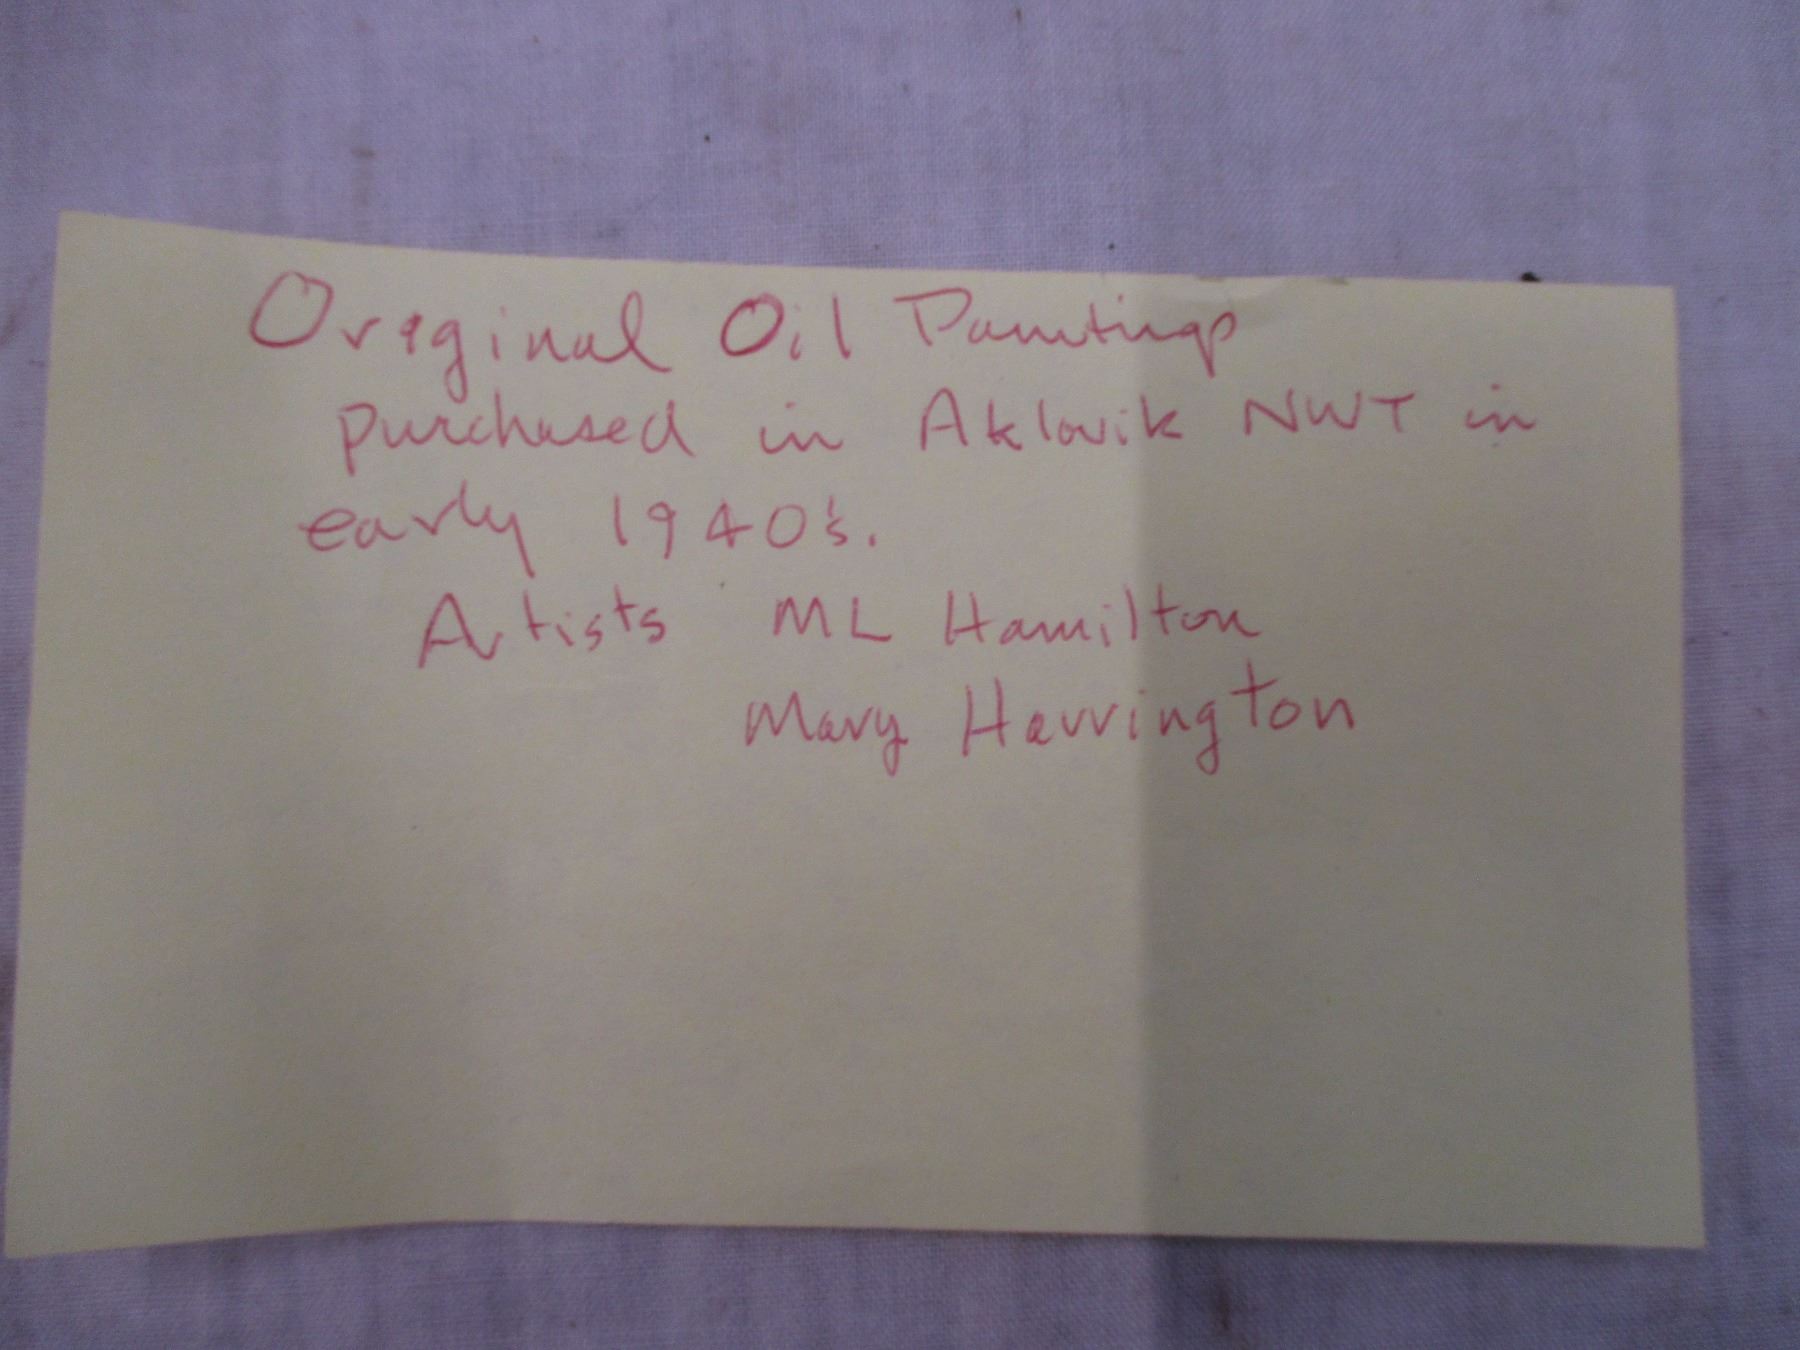 Original Oil Paintings
purchased in Aklavik NWT in
early 1940's.
Artists ML Hamilton
Mary Harrington